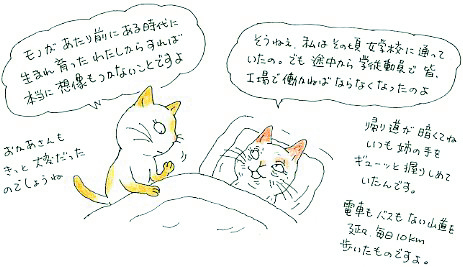 モノがあたり前にある時代に
生まれ育ったわたしからすれば
本当に想像もつかないことですよ
おかあさんも
きっと大変だった
のでしょうね
そうねぇ、私はその頃女学校に通って
いたの。でも途中から学徒動員で皆、
工場で働かねばならなくなったのよ
帰り道が暗くてね
いつも姉の手を
ギューッと握りしめて
いたんです。
電車もバスもない山道を
延々、毎日10km
歩いたものですよ。